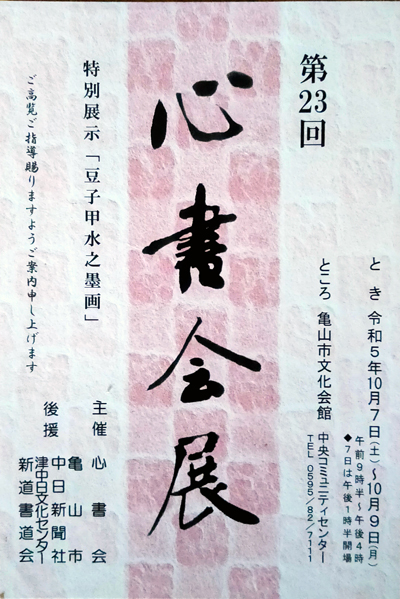 第23回
心書会展
と き 令和5年10月7日(土)～10月9日(月)
午前9時半～午後4時
◆7日は午後1時半開場
ところ 亀山市文化会館
中央コミュニティセンター
TEL 0595/82/7111
特別展示「豆子甲水之墨画」
ご高覧ご指導賜りますようご案内申し上げます
主催 心書会
後援 亀山市
中日新聞社
津中日文化センター
新道書道会